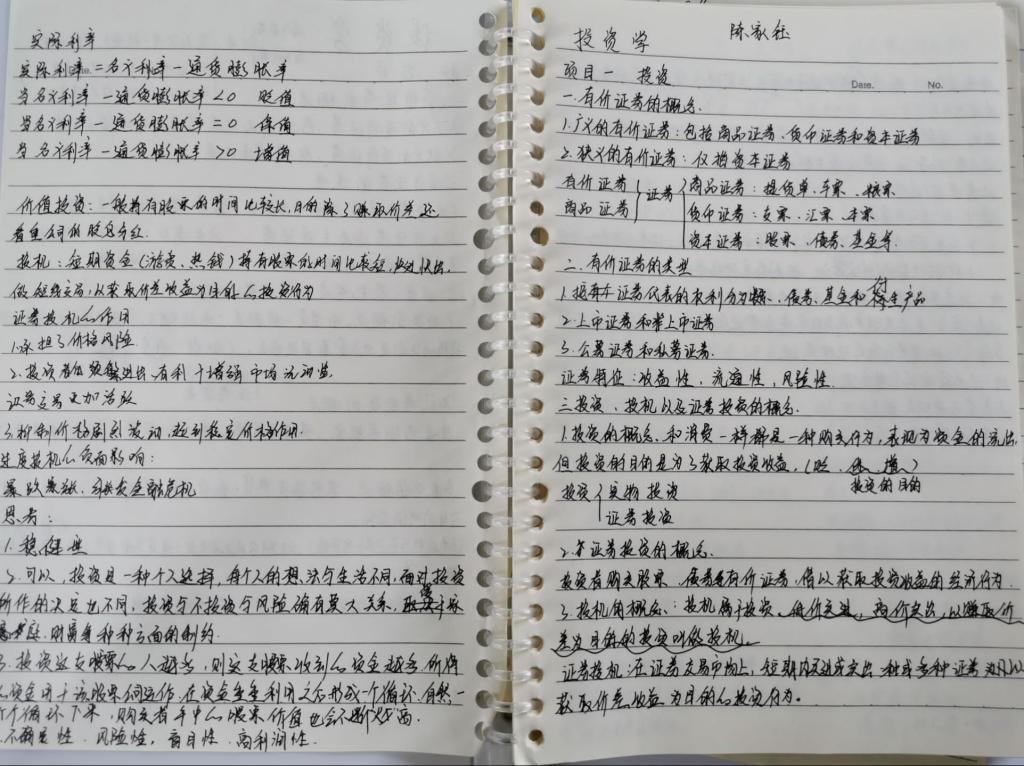 实际利率
实际利率=名义利率-通货膨胀率
当名义利率-通货膨胀率<0 贬值
当名义利率-通货膨胀率=0 保值
当名义利率-通货膨胀率>0 增值
价值投资:一般持有股票的时间比较长,目的除了赚取价差还
看重公司的股息分红.
投机:短期资金(游资、热钱)持有股票的时间比较短,快进快出,
做短线交易,以获取价差收益为目的的投资行为
证券投机的作用
1.承担了价格风险
2.投资者的频繁进出,有利于增强市场流动性.
证券交易更加活跃
3.抑制价格剧烈波动,起到稳定价格作用.
过度投机的负面影响:
暴跌暴涨,引发金融危机
思考:
1.稳健型
2.可以,投资是一种个人选择,每个人的想法与生活不同,面对投资
所作的决定也不同,投资与不投资与风险偏有莫大关系,
财富等种种方面的制约.
3.投资这支股票的人越多,则这支股票收到的资金越多,所将
资金用于该股票何运作,在资金重重利用之后形成一个循环,自然一
个个循环下来,购买者手中的股票价值也会不断火高.
不确定性.风险性,盲目性.高利润性.
投资学 陈家钰
项目一 投资
Date. No.
一.有价证券的概念.
1.广义的有价证券:包括商品证券、货币证券和资本证券
2.狭义的有价证券:仅指资本证券
有价证券 证券 商品证券:提货单、车票、粮票
商品证券 货币证券:支票、汇票、本票
资本证券:股票、债券、基金等.
二.有价证券的类型
付
1.按有车证券代表的权利分为股票、债券、基金和衍生产品
2.上市证券和非上市证券
3.公募证券和私募证券.
证券特征:收益性,流通性,风险性.
三.投资、投机以及证券投资的概念.
1.投资的概念.和消费一样都是一种购买行为,表现为资金的流出,
但投资的目的是为了获取投资收益.(贬、保、增)
投资的目的
投资 实物投资
证券投资
2.证券投资的概念.
投资者购买股票、债券等有价证券,借以获取投资收益的经济行为.
3.投机的概念:投机属于投资.低价买进,高价卖出,以赚取价
差为目的的投资叫做投机.
证券投机:在证券交易市场上,短期内买进或卖出一种或多种证券以
获取价差收益为目的的投资行为.